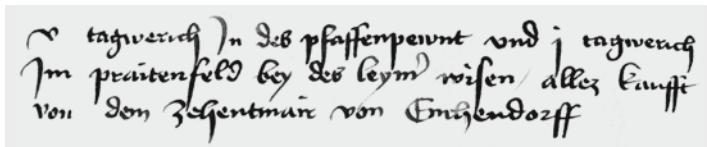 v tagwerich In des pfaffenpewnt und j tagwerich
Im praitenfeld bey des leym' wisen allez kaufft
von dem Zehentmair von Emhendorff